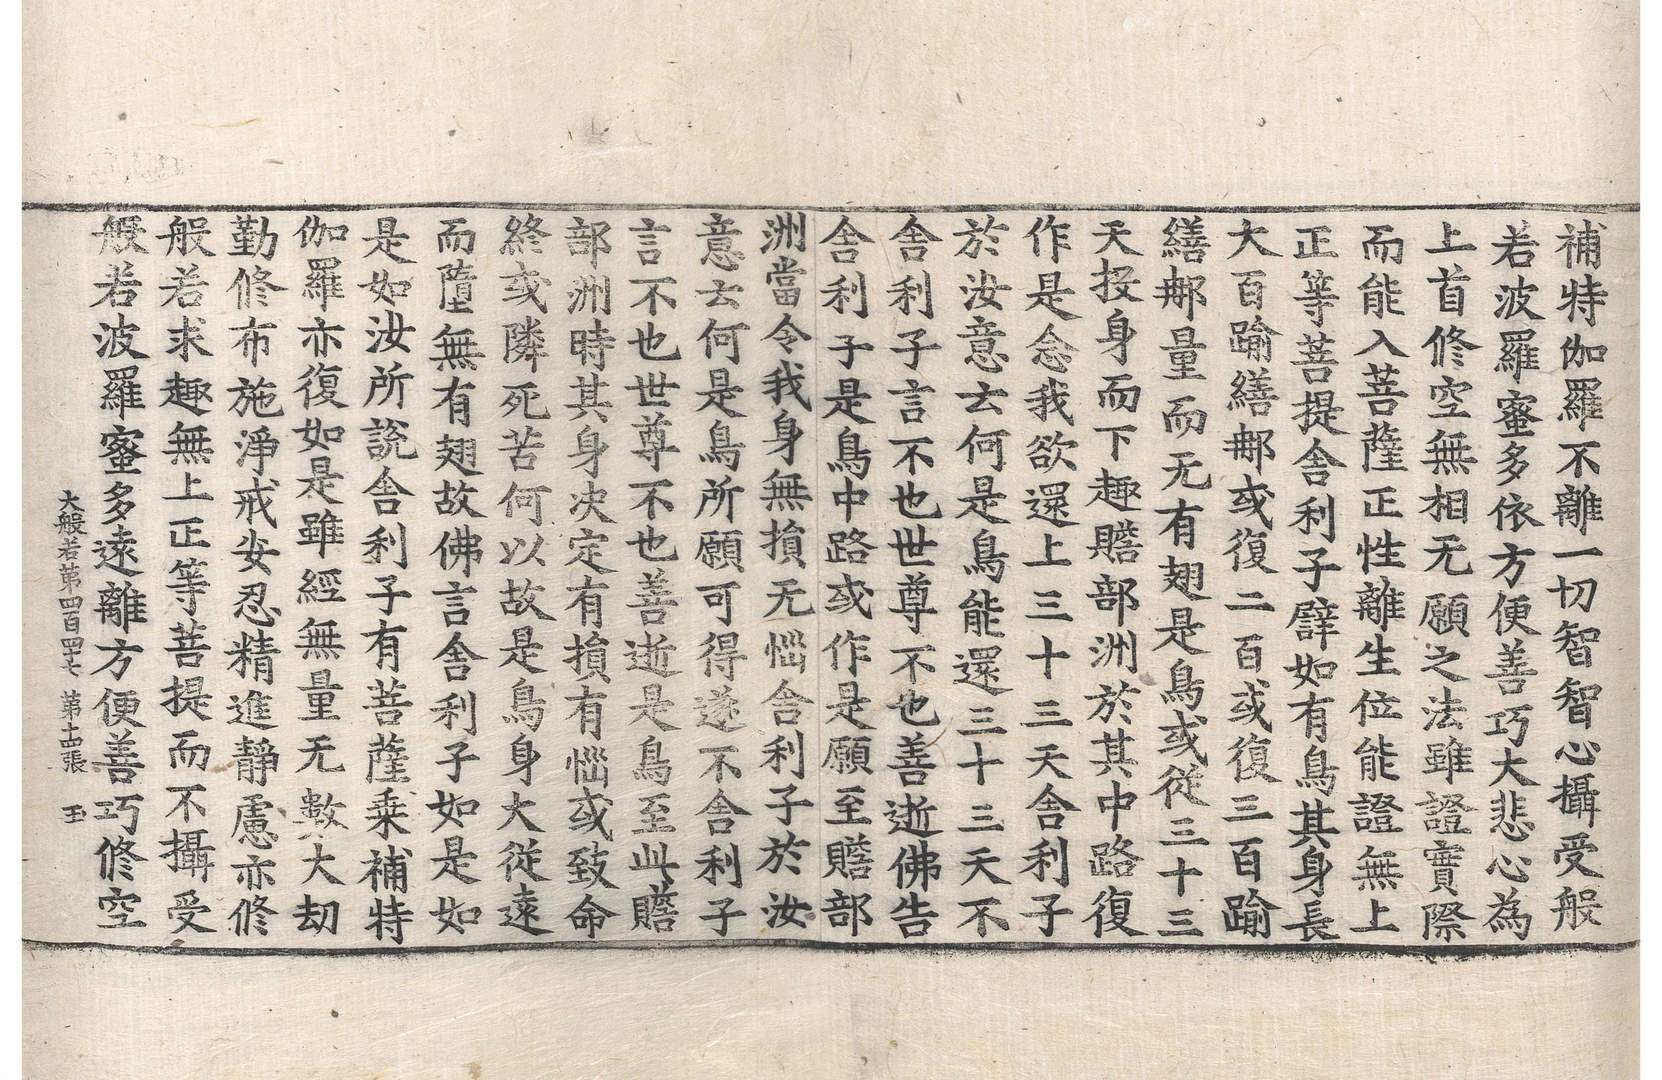 補特伽羅不離一切智智心攝受般
若波羅蜜多依方便善巧大悲心為
上首修空無相无願之法雖證實際
而能入菩薩正性離生位能證無上
正等菩提舍利子譬如有鳥其身長
大百踰繕那或復二百或復三百踰
繕那量而无有翅是鳥或從三十三
天投身而下趣贍部洲於其中路復
作是念我欲還上三十三天舍利子
於汝意云何是鳥能還三十三天不
舍利子言不也世尊不也善逝佛告
舍利子是鳥中路或作是願至贍部
洲當令我身無損无惱舍利子於汝
意云何是鳥所願可得遂不舍利子
言不也世尊不也善逝是鳥至此贍
部洲時其身决定有損有惱或致命
終或隣死苦何以故是鳥身大從遠
而墮無有翅故佛言舍利子如是如
是如汝所說舍利子有菩薩乘補特
伽羅亦復如是雖經無量无數大劫
勤修布施淨戒安忍精進靜慮亦修
般若求趣無上正等菩提而不攝受
般若波羅蜜多遠離方便善巧修空
大般若第四百四十七 第十五張 玉